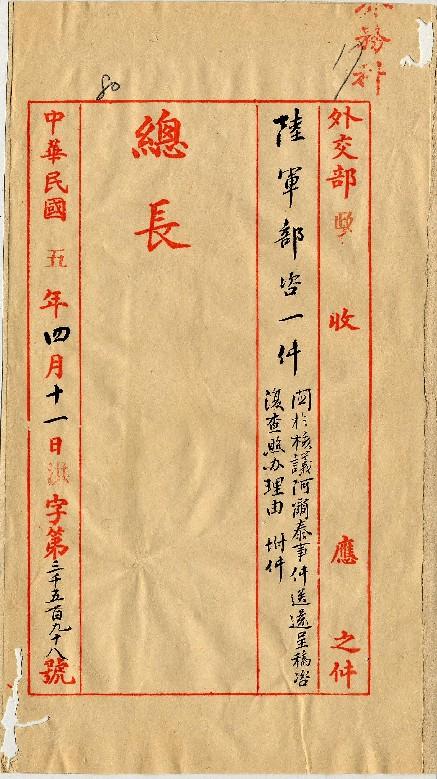 務科
17
外交部 收 應 之件
陸軍部咨一件
關於核議阿爾泰事件送還呈稿咨
復查照办理由 附件
80
總長
中華民國五年四月十一日洪字第三千五百九十八號